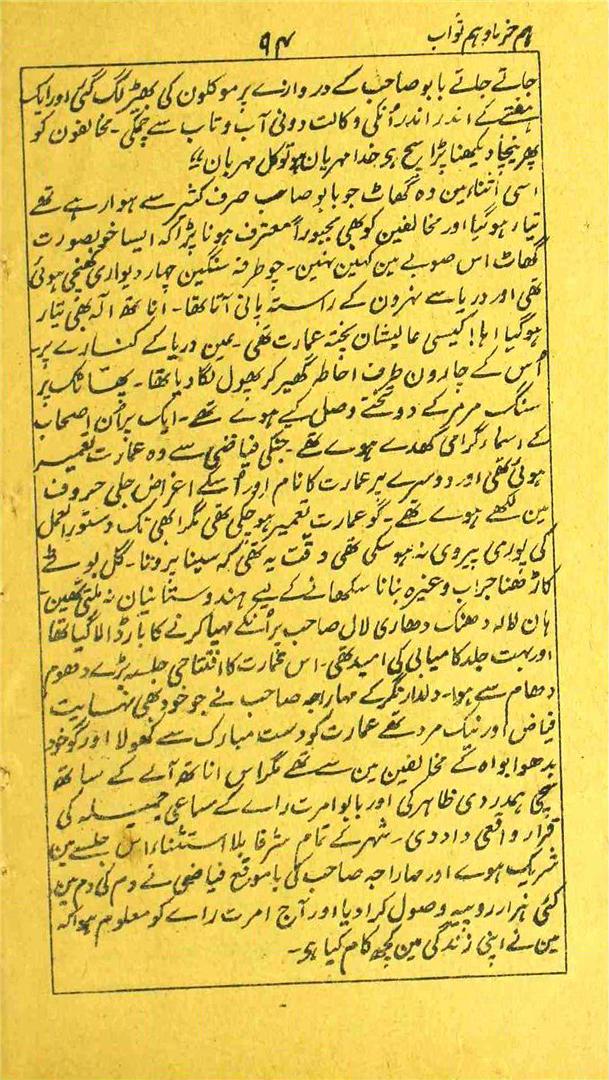 ہم خرما و ہم ثواب ۹۴
جاتے جلتے بابو صاحب کے دروازے پر موکلون کی بھیڑ لگ گئی اور ایک
ہفتے کے اندر اندر اُنکی وکالت دونی آب و تاب سے چمکی۔ مخالفون کو
پھر نیچا دیکھنا پڑا سچ ہی خدا مہربان ہو تو کل مہربان ؎
اسی اثنا مین وہ گھاٹ جو بابو صاحب صرف کثیر سے بنوا رہے تھے
تیار ہو گیا اور مخالفین کو بھی مجبوراً معترف ہونا پڑا کہ ایسا خوبصورت
گھاٹ اس صوبے مین کہین نہین۔ چو طرفہ سنگین چہار دیواری کھنچی ہوئی
تھی اور دریا سے نہرون کے راستہ پانی آتا تھا۔ اناتھ آلہ بھی تیار
ہو گیا اہا! کیسی عالیشان پختہ عمارت تھی۔ عین دریا کے کنارے پر۔
اُس کے چارون طرف احاطہ گھیر کر پھول لگا دیا تھا۔ پھاٹک پر
سنگ مرمر کے دو تختے وصل کیے ہوے تھے۔ ایک پر اُن اصحاب
کے اسماء گرامی کھدے ہوے تھے۔ جنکی فیاضی سے وہ عمارت تعمیر
ہوئی تھی اور دوسرے پر عمارت کا نام اور اُسکے اغراض جلی حروف
مین لکھے ہوے تھے۔ گو عمارت تعمیر ہو چکی تھی مگر ابھی تک دستور العمل
کی پوری پیروی نہ ہو سکی تھی دقت یہ تھی کہ سینا پرونا۔ گل بوٹے
کاڑھنا جراب وغیرہ بنانا سکھانے کے لیے ہندوستانیان نہ ملتی تھین
ہان لالہ دھنک دھاری لال صاحب پر اُنکے مہیا کرنے کا بار ڈالا گیا تھا
اور بہت جلد کامیابی کی امید تھی۔ اس عمارت کا افتتاحی جلسہ بڑے دھوم
دھام سے ہوا۔ دلدار نگر کے مہاراجہ صاحب نے جو خود بھی نہایت
فیاض اور نیک مرد تھے عمارت کو دست مبارک سے کھولا اور گو خود
بدھوا بواہ کے مخالفین مین سے تھے مگر اس اناتھ آلے کے ساتھ
سچی ہمدردی ظاہر کی اور بابو امرت راے کے مساعی جمیلہ کی
قرار واقعی داد دی۔ شہر کے تمام شرفا بلا استثناء اس جلسے مین
شریک ہوے اور مہاراجہ صاحب کی با موقع فیاضی نے دم کی دم مین
کئی ہزار روپیہ وصول کرا دیا اور آج امرت راے کو معلوم ہوا کہ
مین نے اپنی زندگی مین کچھ کام کیا ہی۔